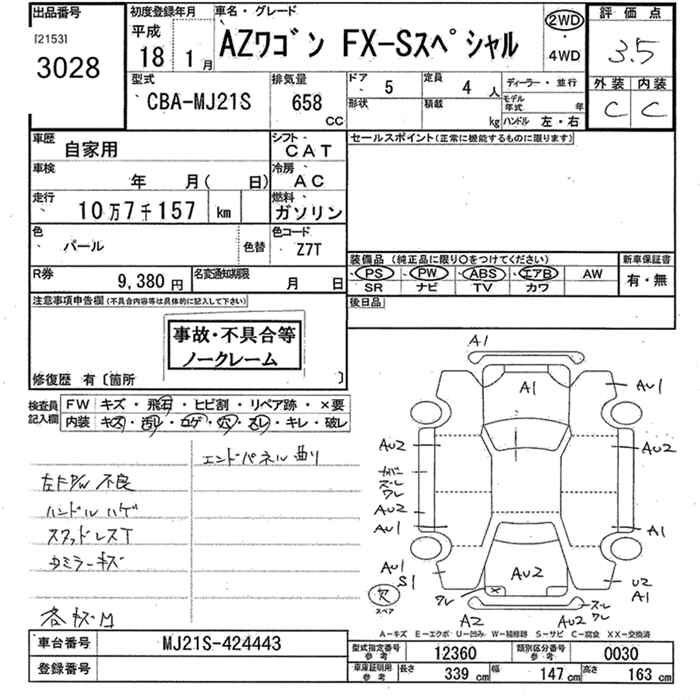 出品番号
[2153]
3028
初度登録年月
平成
18 1月
車名・グレード
AZワゴン FX-Sスペシャル
2WD
・
4WD
評価点
3.5
外装 内装
C C
型式
CBA-MJ21S
排気量
658 CC
ドア 5
形状
定員 4 人
積載 kg
ディーラー・並行
モデル年式 年
ハンドル 左・右
車歴 自家用
シフト CAT
車検 年 月( 日)
冷房 AC
走行 10万7千157 km
燃料 ガソリン
色 パール 色替
色コード Z7T
R券 9,380 円
名変通知期限 月 日
セールスポイント(正常に機能するものに限ります)
装備品(純正品に限り○をつけてください)
PS PW ABS エアB AW
SR ナビ TV カワ
新車保証書
有・無
後日品
注意事項申告欄(不具合内容等は具体的に記入して下さい)
事故・不具合等
ノークレーム
修復歴 有〔箇所 〕
検査員記入欄
FW キズ・飛石・ヒビ割・リペア跡・×要
内装 キズ・汚レ・コゲ・穴・スレ・キレ・破レ
エンドパネル曲り
左FPW 不良
ハンドルハゲ
スタッドレスT
各キズM
A1
A1
AU1
AU2
AU2
ワレ
AU2
AU1
A1
AU1
S1
AU2
U2
A1
ワレ
欠
スペア
A2
AU2
ワレ
A-キズ E-エクボ U-凹み W-補修跡 S-サビ C-腐食 XX-交換済
車台番号 MJ21S-424443
登録番号
型式指定番号 参考 12360
類別区分番号 参考 0030
車庫証明用 参考 長さ 339 cm 幅 147 cm 高さ 163 cm